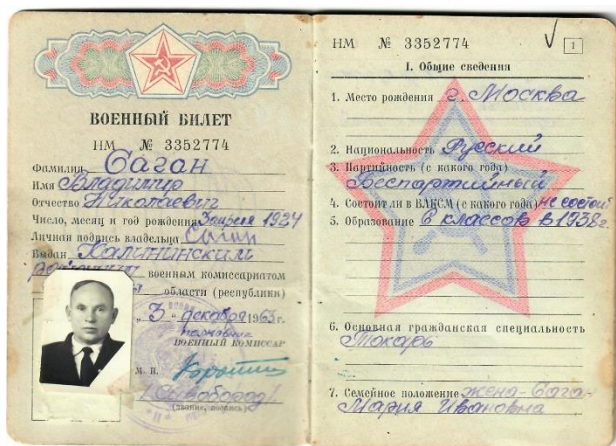 ВОЕННЫЙ БИЛЕТ
НМ № 3352774
Фамилия Саган
Имя Владимир
Отчество Николаевич
Число, месяц и год рождения 3 апреля 1924
Личная подпись владельца
Выдан Калининским
районным военным комиссариатом
области (республики)
„3" декабря 1963 г.
полковник
ВОЕННЫЙ КОМИССАР
М. П.
(звание, подпись)
НМ № 3352774
1
I. Общие сведения
1. Место рождения г. Москва
2. Национальность Русский
3. Партийность (с какого года)
Беспартийный
4. Состоит ли в ВЛКСМ (с какого года) не состоит
5. Образование 6 классов в 1938 г.
6. Основная гражданская специальность
Токарь
7. Семейное положение жена - Сага-
Мария Ивановна